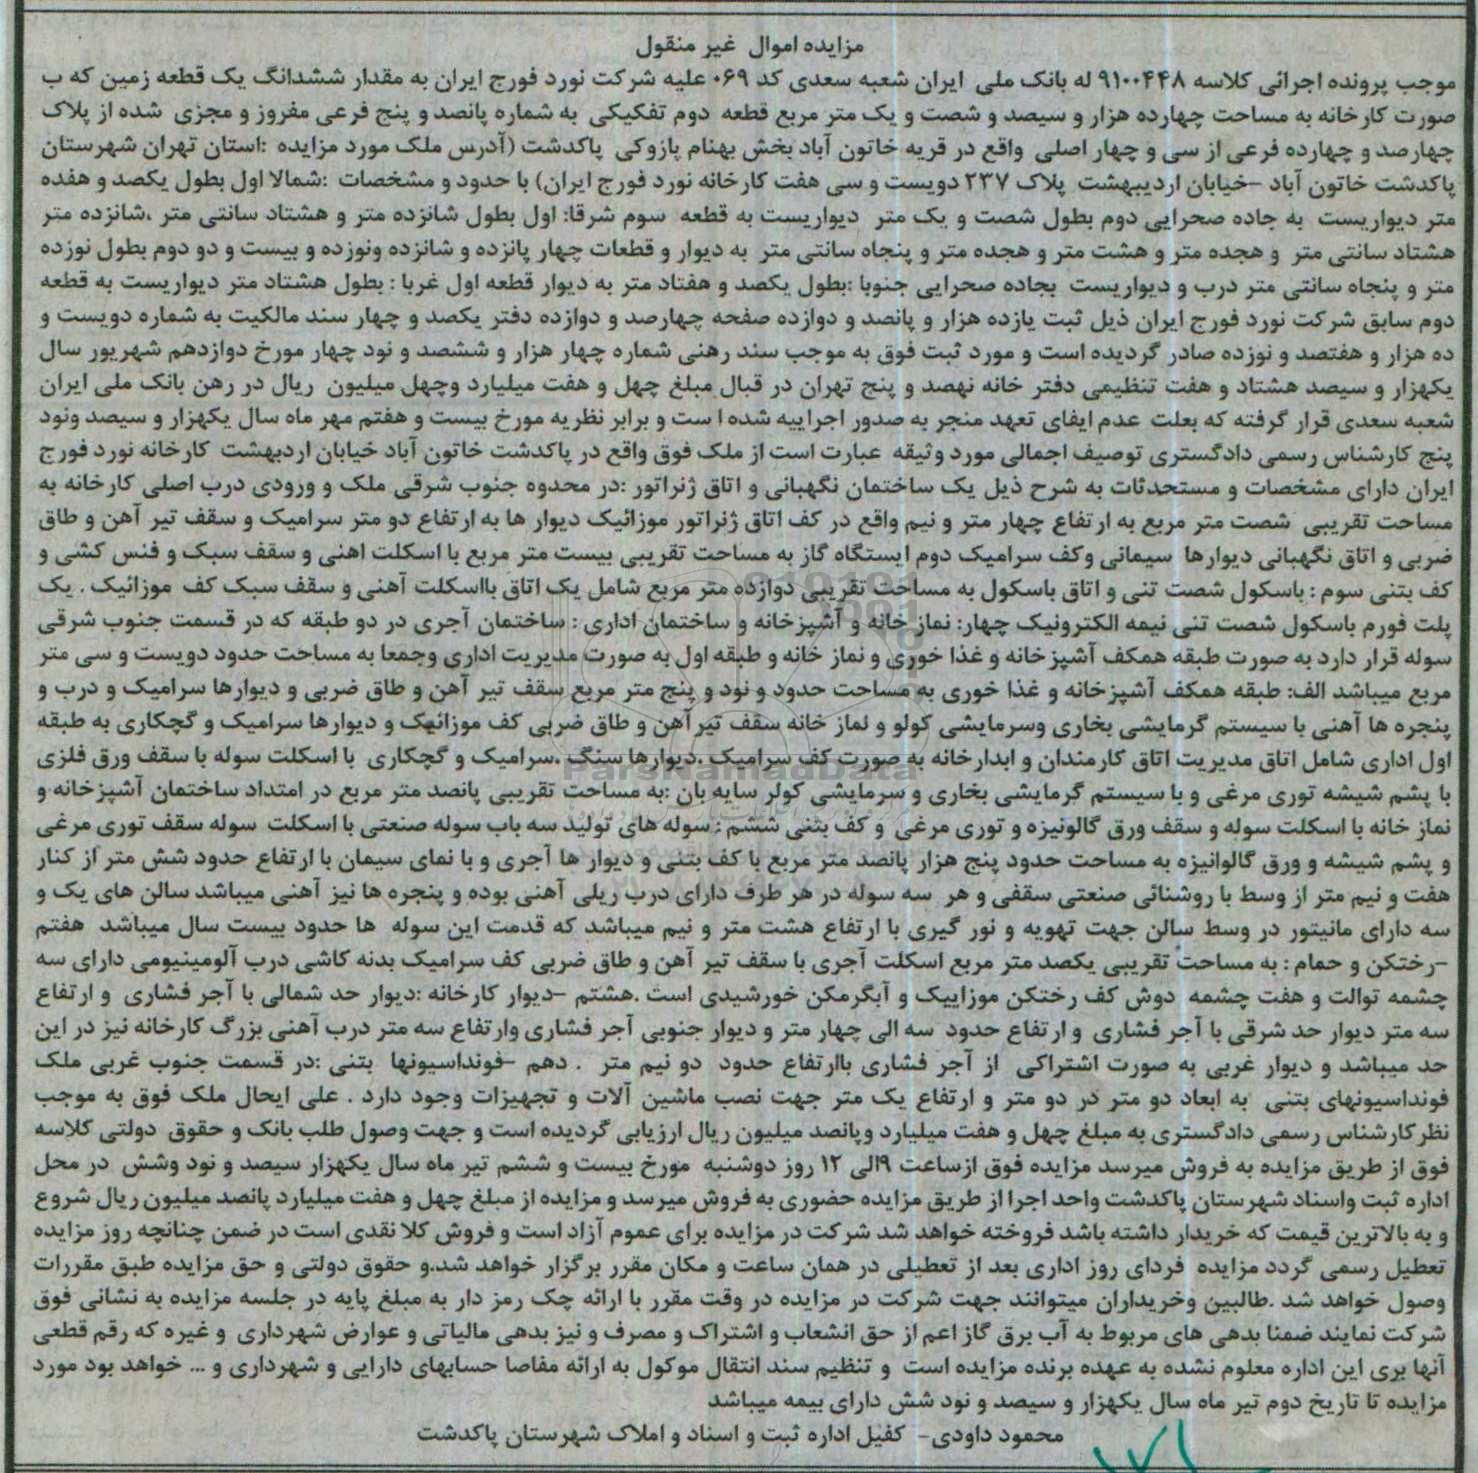 مزایده اموال غیر منقول
موجب پرونده اجرائی کلاسه ۹۱۰۰۴۴۸ له بانک ملی ایران شعبه سعدی کد ۰۶۹ علیه شرکت نورد فورج ایران به مقدار ششدانگ یک قطعه زمین که ب
صورت کارخانه به مساحت چهارده هزار و سیصد و شصت و یک متر مربع قطعه دوم تفکیکی به شماره پانصد و پنج فرعی مفروز و مجزی شده از پلاک
چهارصد و چهارده فرعی از سی و چهار اصلی واقع در قریه خاتون آباد بخش بهنام پازوکی پاکدشت (آدرس ملک مورد مزایده :استان تهران شهرستان
پاکدشت خاتون آباد -خیابان اردیبهشت پلاک ۲۳۷ دویست و سی هفت کارخانه نورد فورج ایران) با حدود و مشخصات :شمالا اول بطول یکصد و هفده
متر دیواریست به جاده صحرایی دوم بطول شصت و یک متر دیواریست به قطعه سوم شرقا: اول بطول شانزده متر و هشتاد سانتی متر ،شانزده متر
هشتاد سانتی متر و هجده متر و هشت متر و هجده متر و پنجاه سانتی متر به دیوار و قطعات چهار پانزده و شانزده ونوزده و بیست و دو دوم بطول نوزده
متر و پنجاه سانتی متر درب و دیواریست بجاده صحرایی جنوبا :بطول یکصد و هفتاد متر به دیوار قطعه اول غربا : بطول هشتاد متر دیواریست به قطعه
دوم سابق شرکت نورد فورج ایران ذیل ثبت یازده هزار و پانصد و دوازده صفحه چهارصد و دوازده دفتر یکصد و چهار سند مالکیت به شماره دویست و
ده هزار و هفتصد و نوزده صادر گردیده است و مورد ثبت فوق به موجب سند رهنی شماره چهار هزار و ششصد و نود چهار مورخ دوازدهم شهریور سال
یکهزار و سیصد هشتاد و هفت تنظیمی دفتر خانه نهصد و پنج تهران در قبال مبلغ چهل و هفت میلیارد وچهل میلیون ریال در رهن بانک ملی ایران
شعبه سعدی قرار گرفته که بعلت عدم ایفای تعهد منجر به صدور اجراییه شده است و برابر نظریه مورخ بیست و هفتم مهر ماه سال یکهزار و سیصد ونود
پنج کارشناس رسمی دادگستری توصیف اجمالی مورد وثیقه عبارت است از ملک فوق واقع در پاکدشت خاتون آباد خیابان اردبهشت کارخانه نورد فورج
ایران دارای مشخصات و مستحدثات به شرح ذیل یک ساختمان نگهبانی و اتاق ژنراتور :در محدوه جنوب شرقی ملک و ورودی درب اصلی کارخانه به
مساحت تقریبی شصت متر مربع به ارتفاع چهار متر و نیم واقع در کف اتاق ژنراتور موزائیک دیوار ها به ارتفاع دو متر سرامیک و سقف تیر آهن و طاق
ضربی و اتاق نگهبانی دیوارها سیمانی وکف سرامیک دوم ایستگاه گاز به مساحت تقریبی بیست متر مربع با اسکلت اهنی و سقف سبک و فنس کشی و
کف بتنی سوم : باسکول شصت تنی و اتاق باسکول به مساحت تقریبی دوازده متر مربع شامل یک اتاق بااسکلت آهنی و سقف سبک کف موزائیک . یک
پلت فورم باسکول شصت تنی نیمه الکترونیک چهار: نماز خانه و آشپزخانه و ساختمان اداری : ساختمان آجری در دو طبقه که در قسمت جنوب شرقی
سوله قرار دارد به صورت طبقه همکف آشپزخانه و غذا خوری و نماز خانه و طبقه اول به صورت مدیریت اداری وجمعا به مساحت حدود دویست و سی متر
مربع میباشد الف: طبقه همکف آشپزخانه و غذا خوری به مساحت حدود و نود و پنج متر مربع سقف تیر آهن و طاق ضربی و دیوارها سرامیک و درب و
پنجره ها آهنی با سیستم گرمایشی بخاری وسرمایشی کولو و نماز خانه سقف تیرآهن و طاق ضربی کف موزائیک و دیوارها سرامیک و گچکاری به طبقه
اول اداری شامل اتاق مدیریت اتاق کارمندان و ابدارخانه به صورت کف سرامیک .دیوارها سنگ .سرامیک و گچکاری با اسکلت سوله با سقف ورق فلزی
با پشم شیشه توری مرغی و با سیستم گرمایشی بخاری و سرمایشی کولر سایه بان :به مساحت تقریبی پانصد متر مربع در امتداد ساختمان آشپزخانه و
نماز خانه با اسکلت سوله و سقف ورق گالونیزه و توری مرغی و کف بتنی ششم : سوله های تولید سه باب سوله صنعتی با اسکلت سوله سقف توری مرغی
و پشم شیشه و ورق گالوانیزه به مساحت حدود پنج هزار پانصد متر مربع با کف بتنی و دیوار ها آجری و با نمای سیمان با ارتفاع حدود شش متر از کنار
هفت و نیم متر از وسط با روشنائی صنعتی سقفی و هر سه سوله در هر طرف دارای درب ریلی آهنی بوده و پنجره ها نیز آهنی میباشد سالن های یک و
سه دارای مانیتور در وسط سالن جهت تهویه و نور گیری با ارتفاع هشت متر و نیم میباشد که قدمت این سوله ها حدود بیست سال میباشد هفتم
-رختکن و حمام : به مساحت تقریبی یکصد متر مربع اسکلت آجری با سقف تیر آهن و طاق ضربی کف سرامیک بدنه کاشی درب آلومینیومی دارای سه
چشمه توالت و هفت چشمه دوش کف رختکن موزاییک و آبگرمکن خورشیدی است .هشتم -دیوار کارخانه :دیوار حد شمالی با آجر فشاری و ارتفاع
سه متر دیوار حد شرقی با آجر فشاری و ارتفاع حدود سه الی چهار متر و دیوار جنوبی آجر فشاری وارتفاع سه متر درب آهنی بزرگ کارخانه نیز در این
حد میباشد و دیوار غربی به صورت اشتراکی از آجر فشاری باارتفاع حدود دو نیم متر . دهم -فونداسیونها بتنی :در قسمت جنوب غربی ملک
فونداسیونهای بتنی به ابعاد دو متر در دو متر و ارتفاع یک متر جهت نصب ماشین آلات و تجهیزات وجود دارد . علی ایحال ملک فوق به موجب
نظرکارشناس رسمی دادگستری به مبلغ چهل و هفت میلیارد وپانصد میلیون ریال ارزیابی گردیده است و جهت وصول طلب بانک و حقوق دولتی کلاسه
فوق از طریق مزایده به فروش میرسد مزایده فوق ازساعت ۹الی ۱۲ روز دوشنبه مورخ بیست و ششم تیر ماه سال یکهزار سیصد و نود وشش در محل
اداره ثبت واسناد شهرستان پاکدشت واحد اجرا از طریق مزایده حضوری به فروش میرسد و مزایده از مبلغ چهل و هفت میلیارد پانصد میلیون ریال شروع
و به بالاترین قیمت که خریدار داشته باشد فروخته خواهد شد شرکت در مزایده برای عموم آزاد است و فروش کلا نقدی است در ضمن چنانچه روز مزایده
تعطیل رسمی گردد مزایده فردای روز اداری بعد از تعطیلی در همان ساعت و مکان مقرر برگزار خواهد شد.و حقوق دولتی و حق مزایده طبق مقررات
وصول خواهد شد .طالبین وخریداران میتوانند جهت شرکت در مزایده در وقت مقرر با ارائه چک رمز دار به مبلغ پایه در جلسه مزایده به نشانی فوق
شرکت نمایند ضمنا بدهی های مربوط به آب برق گاز اعم از حق انشعاب و اشتراک و مصرف و نیز بدهی مالیاتی و عوارض شهرداری و غیره که رقم قطعی
آنها بری این اداره معلوم نشده به عهده برنده مزایده است و تنظیم سند انتقال موکول به ارائه مفاصا حسابهای دارایی و شهرداری و ... خواهد بود مورد
مزایده تا تاریخ دوم تیر ماه سال یکهزار و سیصد و نود شش دارای بیمه میباشد
محمود داودی- کفیل اداره ثبت و اسناد و املاک شهرستان پاکدشت
ParsNamadData